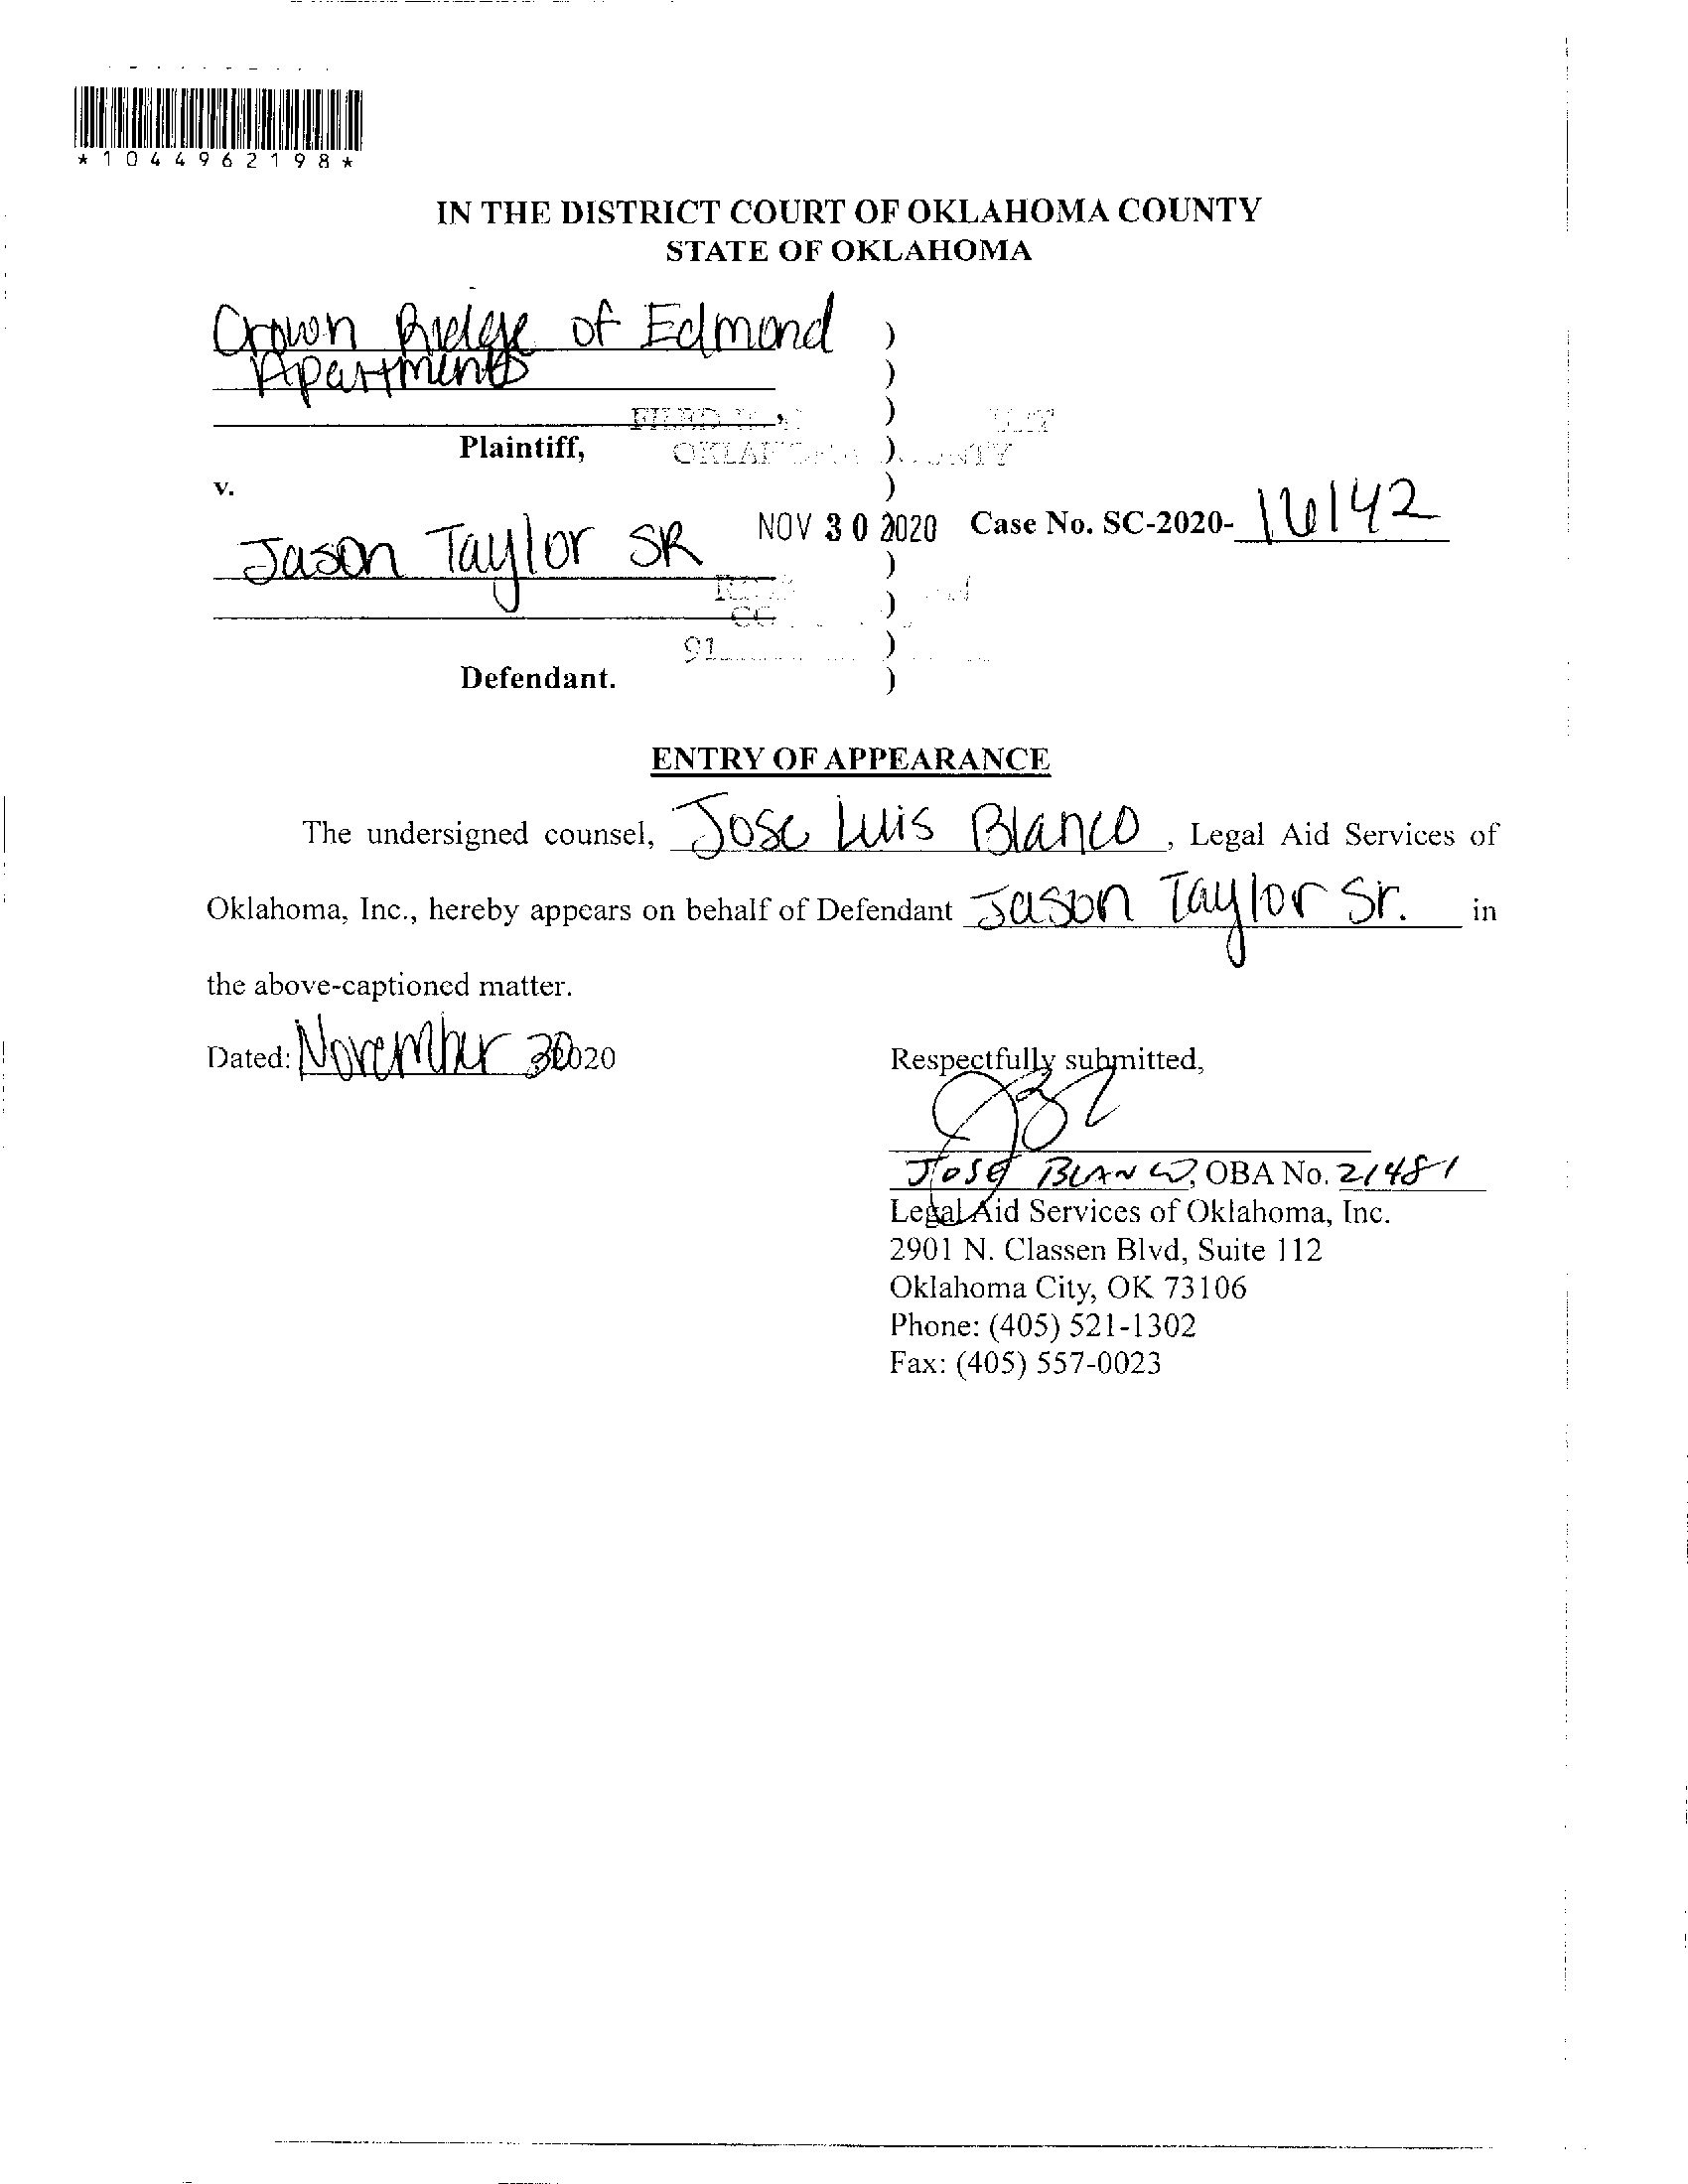 *1044962198*
IN THE DISTRICT COURT OF OKLAHOMA COUNTY
STATE OF OKLAHOMA
Crown Ridge of Edmond )
Apartments )
FILED , )
Plaintiff, )
v. )
Jason Taylor SR NOV 30 2020 Case No. SC-2020- 16142
)
)
91 )
Defendant. )
ENTRY OF APPEARANCE
The undersigned counsel, Jose Luis Blanco, Legal Aid Services of
Oklahoma, Inc., hereby appears on behalf of Defendant Jason Taylor Sr. in
the above-captioned matter.
Dated: November 30 2020 Respectfully submitted,
JOSE BLANCO, OBA No. 21481
Legal Aid Services of Oklahoma, Inc.
2901 N. Classen Blvd, Suite 112
Oklahoma City, OK 73106
Phone: (405) 521-1302
Fax: (405) 557-0023